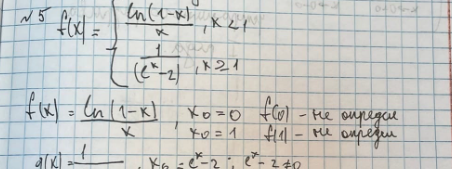 №5 f(x) = { ln(1-x)/x , x<1
1/(eˣ-2) , x≥1
f(x) = ln(1-x)/x , x₀=0 f(0) - не определ
x₀=1 f(1) - не определ
g(x) = 1 , x₀ = eˣ-2 ; eˣ-2≠0